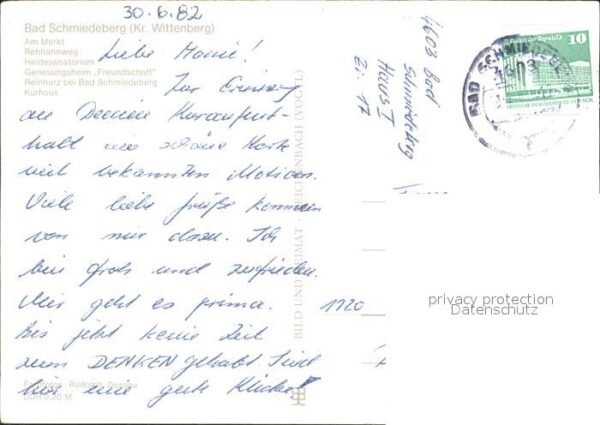 30.6.82
Bad Schmiedeberg (Kr. Wittenberg)
Am Markt
Rehhahnweg
Heidesanatorium
Genesungsheim „Freundschaft"
Reinharz bei Bad Schmiedeberg
Kurhaus
Liebe
Zur Erinnerung
an Deinen Kuraufent-
halt eine schöne Karte
mit bekannten Motiven.
Viele liebe Grüße kommen
von mir dazu. Ich
bin froh und zufrieden.
Mir geht es prima.
Bis jetzt keine Zeit
zum DENKEN gehabt. Sind
hier eine gute Klicke!
Farbfotos: Rudolph, Dessau
DDR 0,20 M
BILD UND HEIMAT REICHENBACH (VOGTL)
4603 Bad
Schmiedeberg
Haus I
Zi. 17
1920
10
BAD SCHMIEDEBERG
4603
privacy protection
Datenschutz